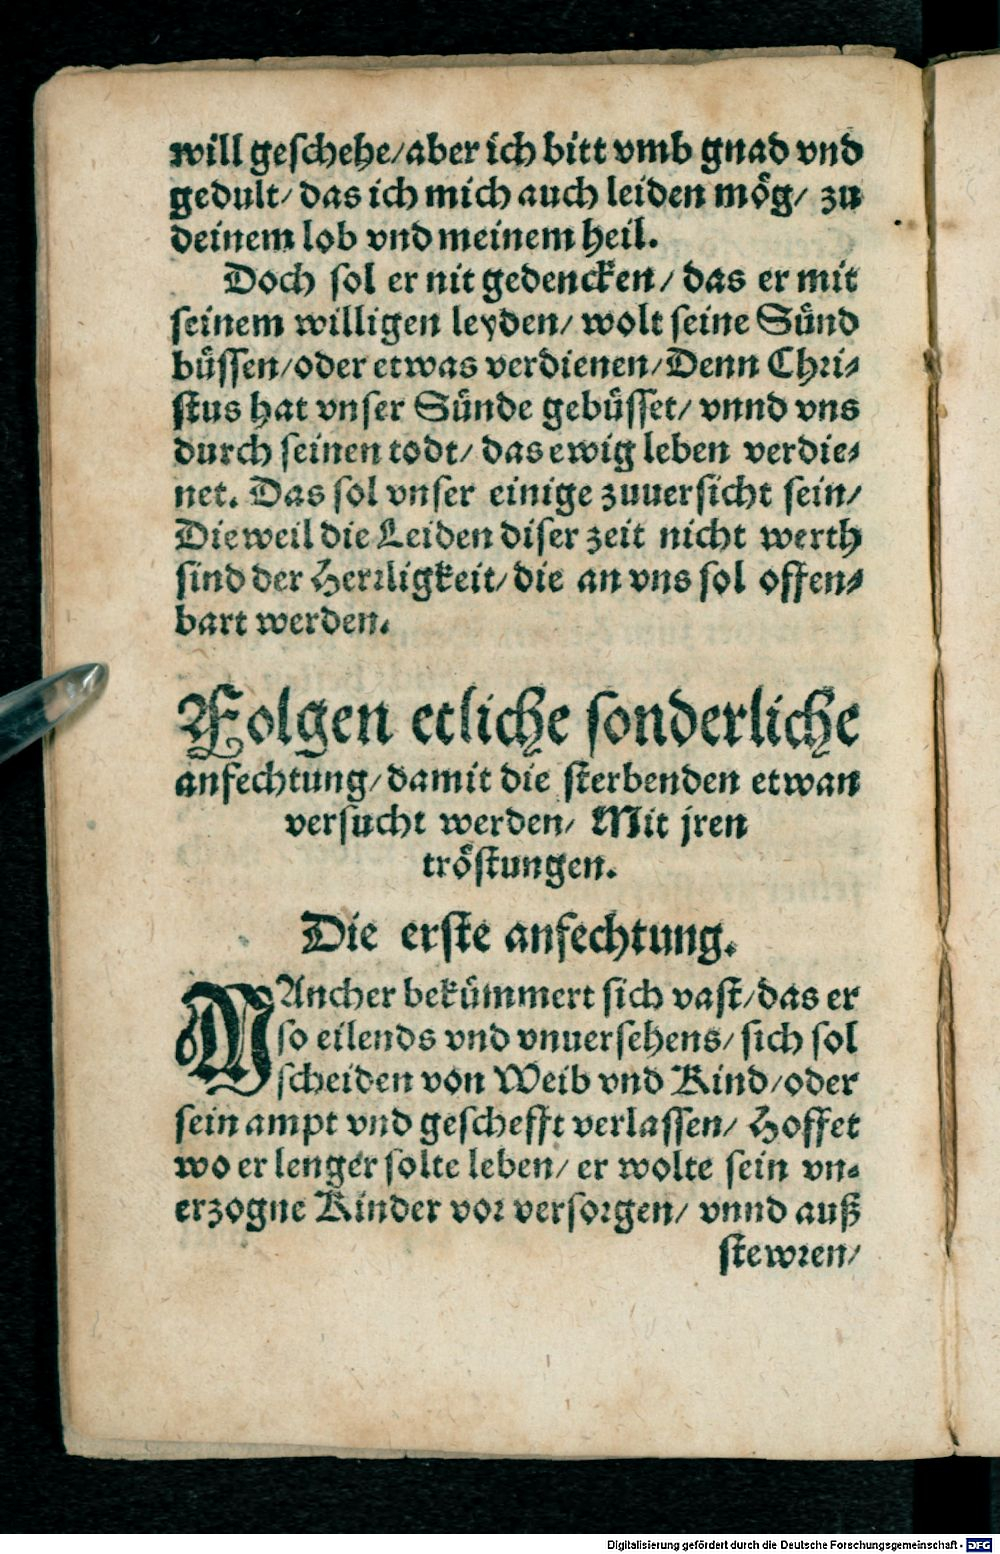 will geschehe/aber ich bitt vmb gnad vnd
gedult/ das ich mich auch leiden mög/ zu
deinem lob vnd meinem heil.
Doch sol er nit gedencken/ das er mit
seinem willigen leyden/ wolt seine Sünd
büssen/oder etwas verdienen/Denn Chri-
stus hat vnser Sünde gebüsset/ vnnd vns
durch seinen todt/ das ewig leben verdie-
net. Das sol vnser einige zuuersicht sein/
Dieweil die Leiden diser zeit nicht werth
sind der Herrligkeit/die an vns sol offen-
bart werden.
Folgen etliche sonderliche
anfechtung/damit die sterbenden etwan
versucht werden/ Mit jren
tröstungen.
Die erste anfechtung.
MAncher bekümmert sich vast/das er
so eilends vnd vnuersehens/ sich sol
scheiden von Weib vnd Kind/oder
sein ampt vnd geschefft verlassen/ Hoffet
wo er lenger solte leben/ er wolte sein vn-
erzogne Kinder vor versorgen/ vnnd auß
stewren/
Digitalisierung gefördert durch die Deutsche Forschungsgemeinschaft - DFG